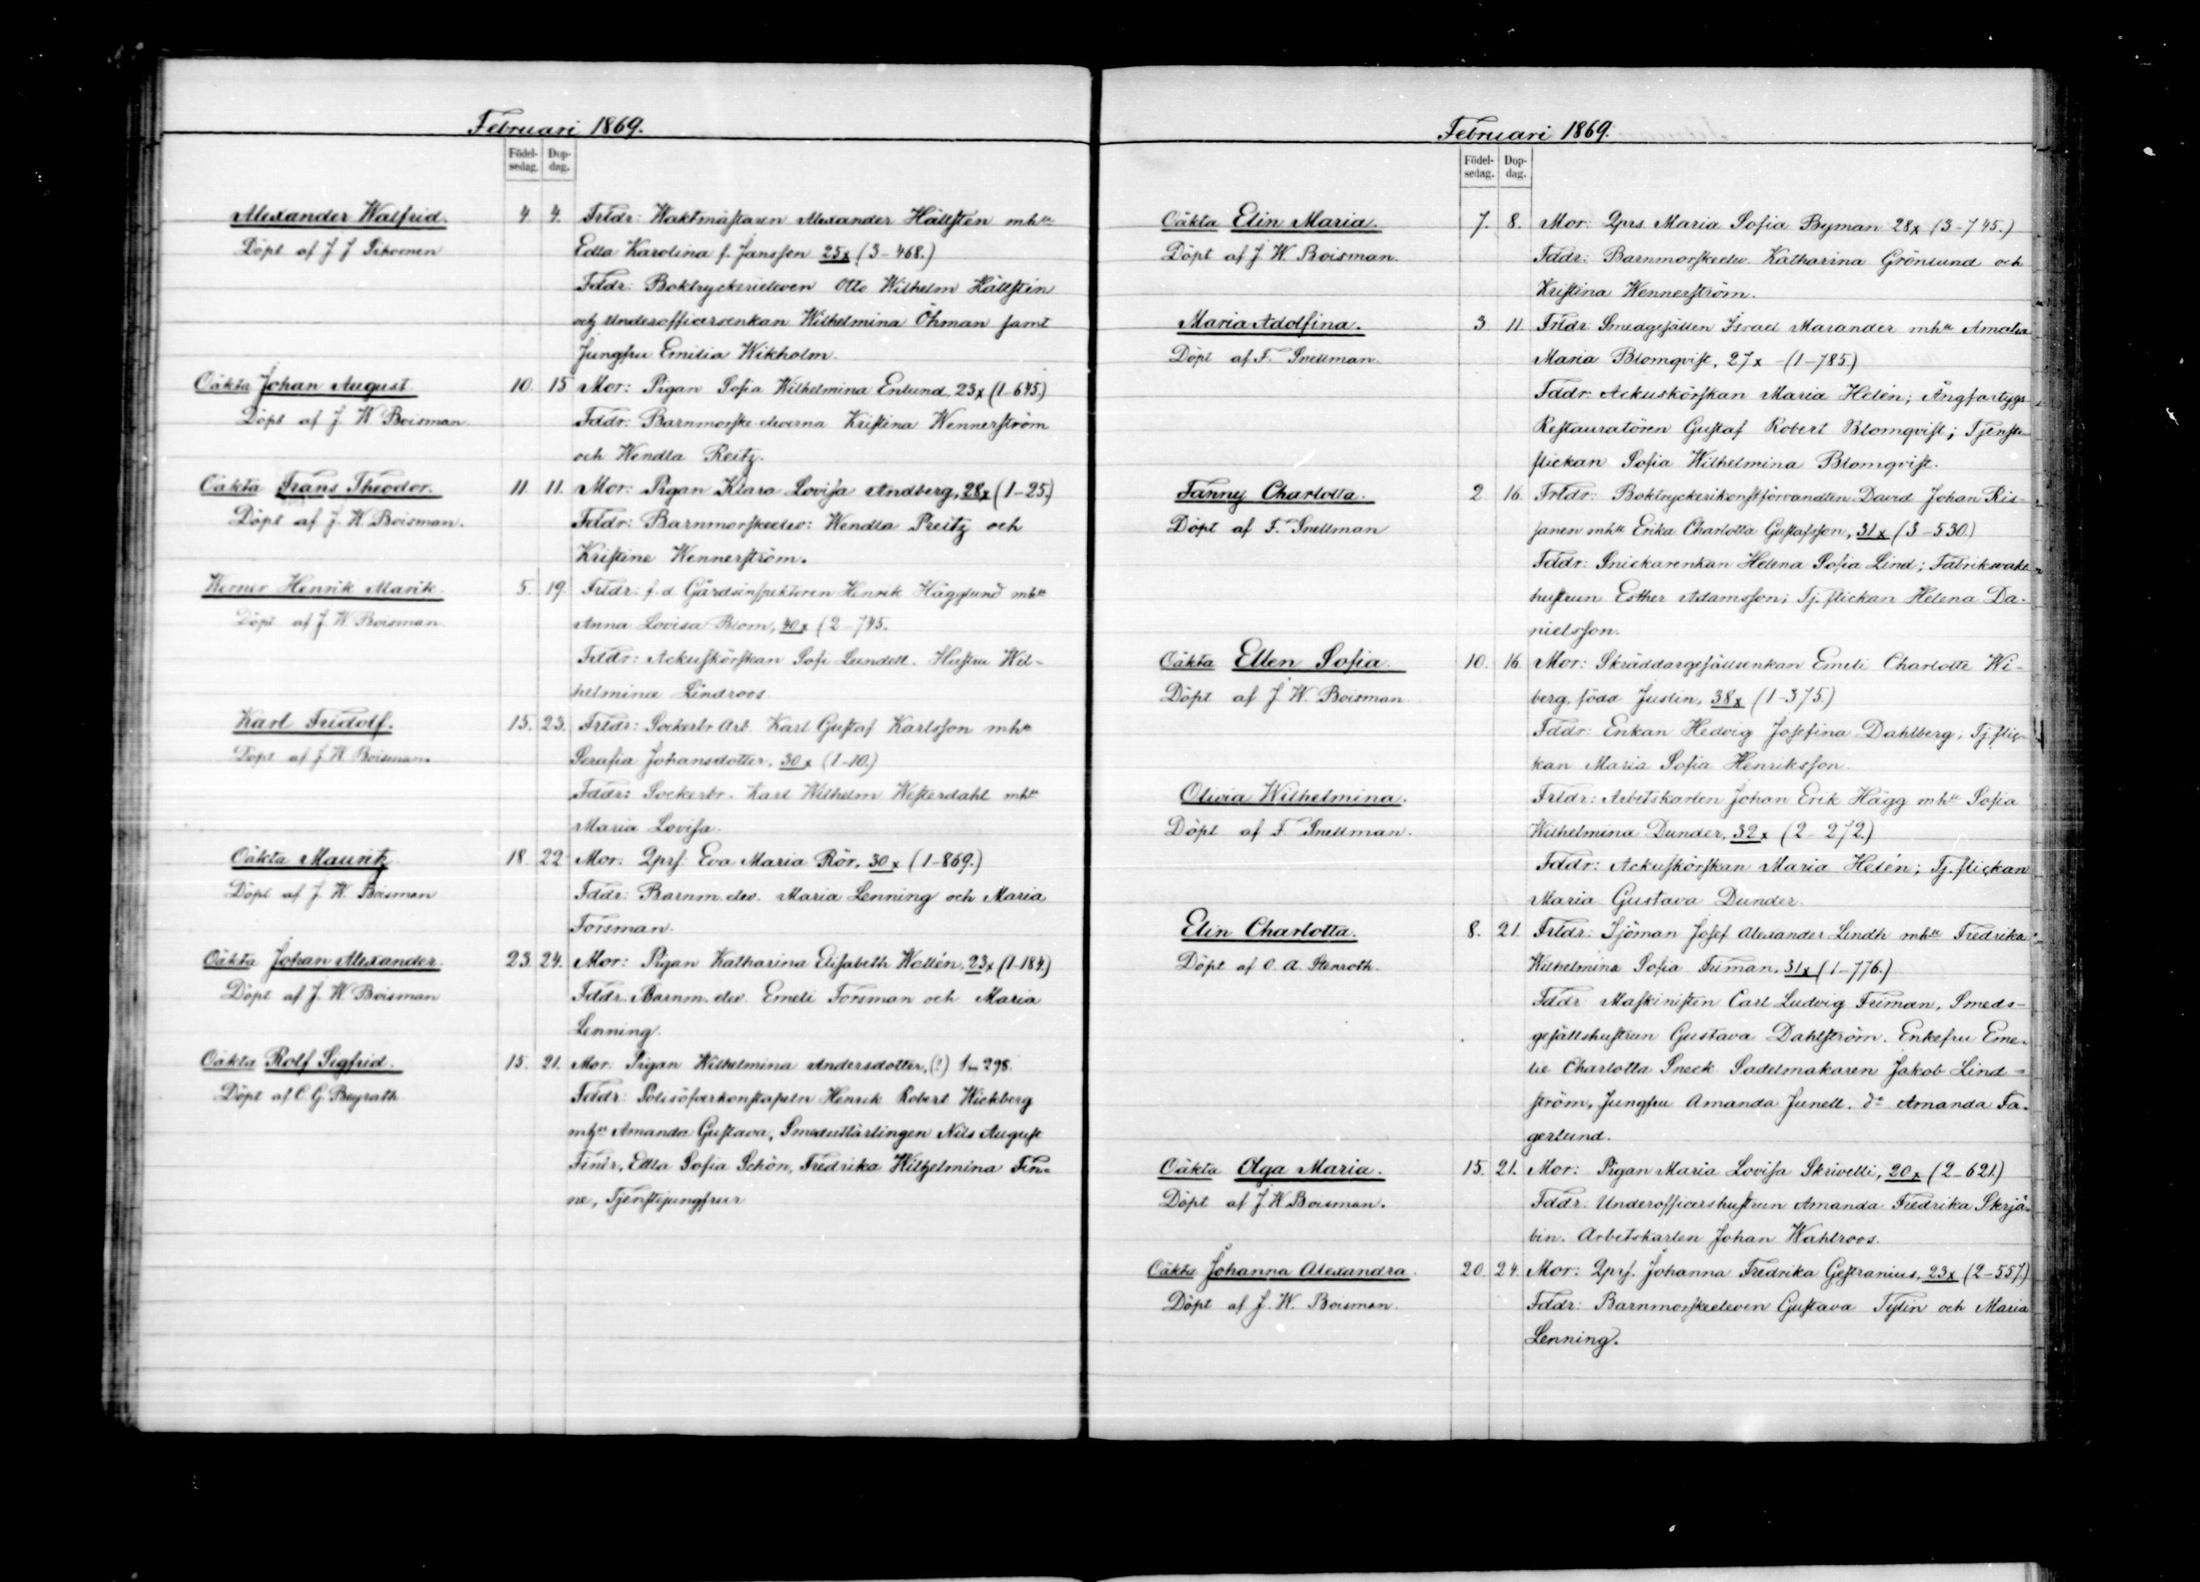 Februari 1869.
Födel-
sedag.
Dop-
dag.
Alexander Walfrid. 4. 4. Frldr: Waktmästaren Alexander Hällsten mh
Döpt af J J Edla Karolina f. Jansson 25x (3-468.)
Fddr: Boktryckerieleven Otto Wilhelm Hällsten
och Underofficersenkan Wilhelmina Öhman samt
Jungfru Emilia Wikholm.
Oäkta Johan August. 10. 15 Mor: Pigan Sofia Wilhelmina Enlund, 23x (1-645.)
Döpt af J. W. Boisman. Fddr: Barnmorske-eleverna Kristina Wennerström
och Wendla Reitz.
Oäkta Frans Theodor. 11. 11. Mor: Pigan Klara Lovisa Andberg, 28x (1-25.)
Döpt af J. W. Boisman. Fddr: Barnmorskeelev: Wendla Preitz och
Kristine Wennerström.
Werner Henrik Marik 5. 19. Frldr: f.d. Gårdsinspektoren Henrik Hägglund mh
Döpt af J. W. Boisman. Anna Lovisa Blom, 40x (2-745.
Fddr: Ackuskörskan Sofi Lundell. Hustru Wil-
helmina Lindroos.
Karl Fridolf. 15. 23. Frldr: Sockerbr. Arb. Karl Gustaf Karlsson mh
Döpt af J. W. Boisman. Serafia Johansdotter, 30x (1-10.)
Fddr: Sockerbr. Karl Wilhelm Westerdahl mh
Maria Lovisa.
Oäkta Mauritz 18. 22 Mor: Qprs. Eva Maria Rör, 30x (1-869.)
Döpt af J. W. Boisman Fddr: Barnm. elev. Maria Lenning och Maria
Forsman.
Oäkta Johan Alexander. 23. 24. Mor: Pigan Katharina Elisabeth Wallén, 23x (1-184.)
Döpt af J. W. Boisman Fddr. Barnm. elev. Emeli Forsman och Maria
Lenning.
Oäkta Rolf Sigfrid. 15. 21. Mor: Pigan Wilhelmina Andersdotter, (?) 298.
Döpt af C. G. Beyrath. Fddr: Polisöfverkonstapeln Henrik Robert Wickberg
mh Amanda Gustava, Smedslärlingen Nils August
Finér, Edla Sofia Schön, Fredrika Wilhelmina Fin-
ne, Tjenstejungfrur
Februari 1869.
Födel-
sedag.
Dop-
dag.
Oäkta Elin Maria. 7. 8. Mor: Qprs. Maria Sofia Byman 28x (3-745.)
Döpt af J. W. Boisman. Fddr: Barnmorskeelev. Katharina Grönlund och
Kristina Wennerström.
Maria Adolfina. 3. 11. Frldr: Smedgesällen Israel Marander mh Amalia
Döpt af F. Snellman. Maria Blomqvist, 27x -(1-785)
Fddr: Ackuskörskan Maria Helén; Ångfartygs
Restauratören Gustaf Robert Blomqvist; Tjenste-
flickan Sofia Wilhelmina Blomqvist.
Fanny Charlotta. 2. 16. Frldr: Boktryckerikonstförvandten David Johan Ris-
Döpt af F. Snellman sanen mh Erika Charlotta Gustafsson, 31x (3-530.)
Fddr: Snickarenkan Helena Sofia Lind; Fabriksvakt-
hustrun Esther Adamsson; Tj. flickan Helena Da-
nielsson.
Oäkta Ellen Sofia. 10. 16. Mor: Skräddargesällsenkan Emeli Charlotte Wi-
Döpt af J. W. Boisman. berg, född Juslin, 38x (1-375.)
Fddr: Enkan Hedvig Josefina Dahlberg; Tj. flic-
kan Maria Sofia Henriksson.
Olivia Wilhelmina. Frldr: Arbetskarlen Johan Erik Hägg mh Sofia
Döpt af F. Snellman. Wilhelmina Dunder, 32x (2-272.)
Fddr: Ackuskörskan Maria Helén; Tj. flickan
Maria Gustava Dunder.
Elin Charlotta. 8. 21. Frldr: Sjöman Josef Alexander Lindh mh Fredrika
Döpt af O. A. Stenroth. Wilhelmina Sofia Friman, 31x (1-776.)
Fddr Maskinisten Carl Ludvig Friman, Smeds-
gesällshustrun Gustava Dahlström. Enkefru Eme-
lie Charlotta Sneck. Sadelmakaren Jakob Lind-
ström, Jungfru Amanda Junell. d:o Amanda Fa-
gerlund.
Oäkta Olga Maria. 15. 21. Mor: Pigan Maria Lovisa Skrivelli, 20x (2-621.)
Döpt af J. W. Boisman. Fddr: Underofficershustrun Amanda Fredrika Skrjä-
bin. Arbetskarlen Johan Wahlroos.
Oäkta Johanna Alexandra. 20. 24. Mor: Qprs. Johanna Fredrika Gestranius, 23x (2-557.)
Döpt af J. W. Boisman. Fddr: Barnmorskeeleven Gustava Tylin och Maria
Lenning.